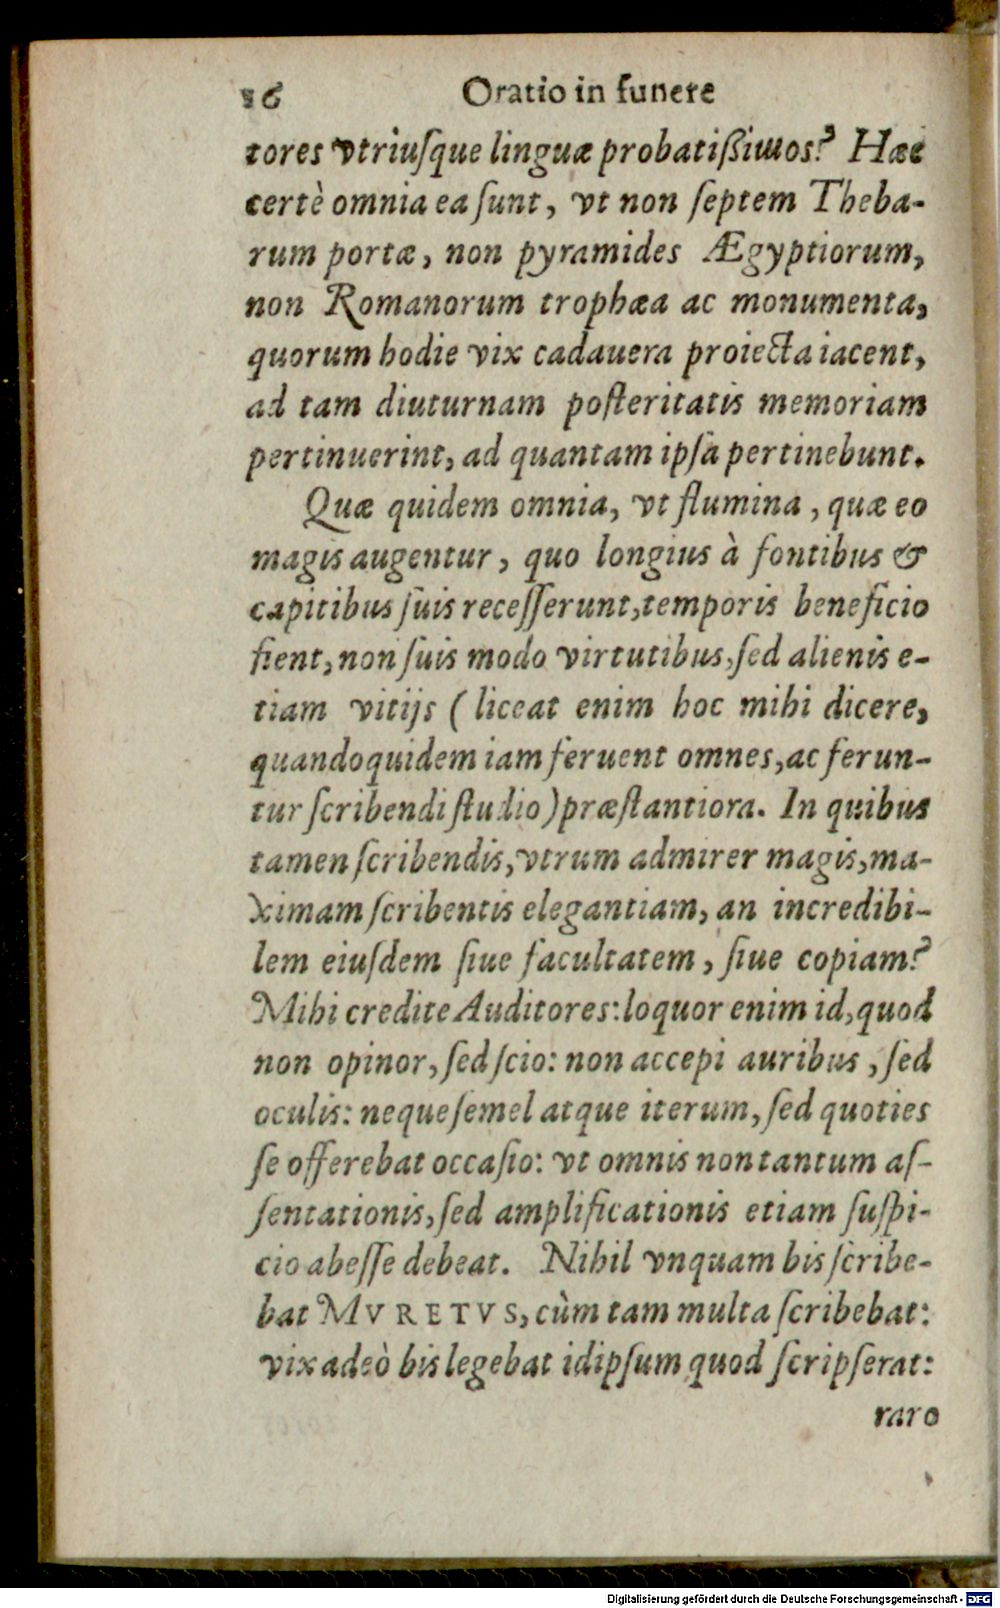 16 Oratio in funere
tores vtriuſque linguæ probatiſſimos? Hæc
certè omnia ea ſunt, vt non ſeptem Theba-
rum portæ, non pyramides Ægyptiorum,
non Romanorum trophæa ac monumenta,
quorum hodie vix cadauera proiecta iacent,
ad tam diuturnam poſteritatis memoriam
pertinuerint, ad quantam ipſa pertinebunt.
Quæ quidem omnia, vt flumina, quæ eo
magis augentur, quo longius à fontibus &
capitibus ſuis receſſerunt, temporis beneficio
fient, non ſuis modo virtutibus, ſed alienis e-
tiam vitijs (liceat enim hoc mihi dicere,
quandoquidem iam feruent omnes, ac ferun-
tur ſcribendi ſtudio) præſtantiora. In quibus
tamen ſcribendis, vtrum admirer magis, ma-
ximam ſcribentis elegantiam, an incredibi-
lem eiuſdem ſiue facultatem, ſiue copiam?
Mihi credite Auditores: loquor enim id, quod
non opinor, ſed ſcio: non accepi auribus, ſed
oculis: neque ſemel atque iterum, ſed quoties
ſe offerebat occaſio: vt omnis non tantum aſ-
ſentationis, ſed amplificationis etiam ſuſpi-
cio abeſſe debeat. Nihil vnquam bis ſcribe-
bat MVRETVS, cùm tam multa ſcribebat:
vix adeò bis legebat idipſum quod ſcripſerat:
raro
Digitalisierung gefördert durch die Deutsche Forschungsgemeinschaft - DFG